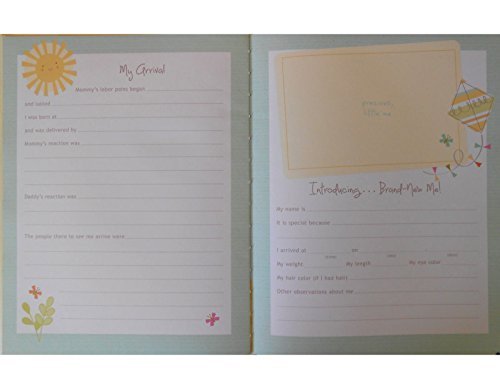 My Arrival
Mommy's labor pains began
and lasted
I was born at
and was delivered by
Mommy's reaction was
Daddy's reaction was
The people there to see me arrive were
precious
little me
Introducing... Brand-New Me!
My name is
It is special because
I arrived at on
(time) (date)
My weight My length My eye color
My hair color (if I had hair)
Other observations about me